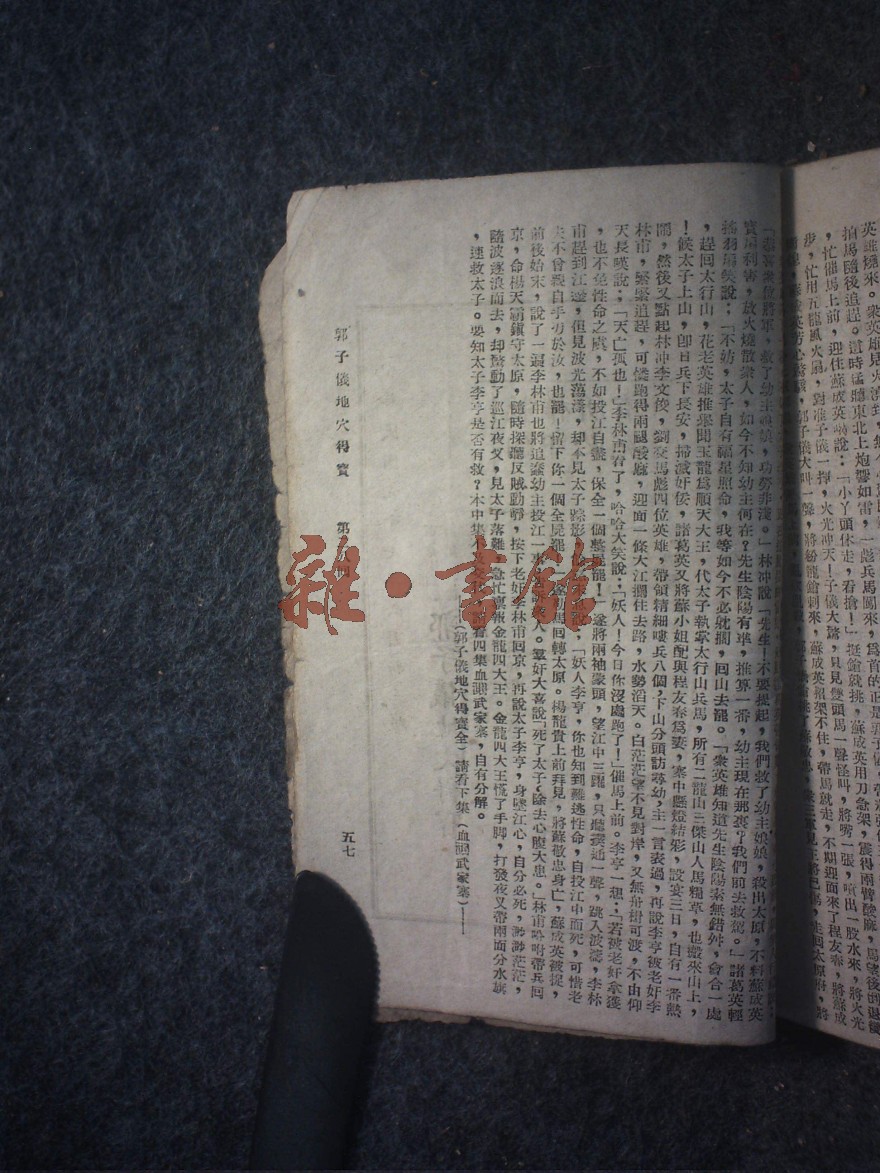 英雄燒來。衆英雄見火
拍馬隨後追趕。這時猛聽東北上炮響如雷，一彪兵馬闖來，爲首的正是郭子儀，
，忙催馬上前，迎住蘇成英喝說：「小丫頭休走，看搶！」挺鎗就挑，蘇成英用刀急架，震得兩臂酸麻，馬望後倒退幾
步，忙用五龍風火扇，對準子儀一揮，火光冲天！子儀大驚，只見雙頭馬一聲怪叫，將嘴一張，噴出一股水來，將火光
郭子儀大叫一聲，將紛龍鎗刺來，蘇成英招架不住，帶馬就走，不期迎面來了程友春，將蘇成
走回太原府，將
衆位將軍，救了幼主娘娘，功勞非淺。」林冲說「先生！不要提起，我們救了幼主娘娘，殺出太原，不料蘇成英
寶扇利害，放火燒散衆人，如今不知幼主何在？先生陰陽有準，推算一番，幼主現在那裏？我們前去救駕。」諸葛英輕
搖羽扇笑說：「不妨，太子自有福星照命，我等如今不必躭擱，回山去罷。」衆英雄知道先生陰陽素無錯舛，會合一處
，趕回太行山，花老英雄推舉聞玉龍爲順天大王，代太子執掌太行山兵馬，所有二龍山三傑山人馬糧草，也搬來山上，
！候太子上山，卽日兵下長安，掃滅奸佞，諸葛英又將蘇小姐配與程友春爲妻，寨中懸燈結彩，設宴三日，自有一番熱
鬧，然後又點起林冲李文俊，劉安馬彪四位英雄，帶領精細嘍兵八個，下山分頭訪尋幼主，一言表過，再說李亨被老奸李
林甫，緊緊追趕，可憐跑得兩腿酸麻，迎面一條大江攔住去路，水勢滔天。白茫茫望不見對岸，又無舟楫可渡，不由仰
天長嘆說：「天亡孤也！」李林甫看了，哈哈大笑說：「妖人！今日你沒處跑了！」催馬上前。李亨一想：「若被老奸拿獲
，也不免性命之虞，不如投江自盡，保全一個整屍罷！」遂將兩袖蒙頭，望江中三躍，只聽撲通一聲，跳入波濤，李林
甫趕到江邊，但見波光蕩漾，却不見太子踪影，「妖人李亨，你也知到難逃性命，自投江中而死，可惜老
夫不曾親自手刃於汝，也罷！留下你一個全屍罷！」遂勒馬回轉太原。楊龍貴上前拜見，將蘇敬忠身亡，蘇成英被捉，
前後始末，說了一遍李林甫也將追幼主投江一事，人。羣奸大喜說「死了太子，除去心腹大患。」林甫吩咐帶兵回
京，命楊天霸鎭守太原，隨時探聽反賊動靜，按下老奸李林甫回京，再說太子李亨，身墜江心，自分必死，渺渺茫茫，
隨波逐浪而去，却驚動了巡江夜叉，見太子落難，急忙禀報金龍四大王。金龍四大王慌了手脚，打發夜叉帶兩面分水旗
，速救太子。要知太子李亨是否有救？本中集不及交代，看四集血濺武家寨，自有分解。
（郭子儀地穴得寶全）請看下集（血濺武家寨）——
郭子儀地穴得寶　第　回　五七
雜·書館